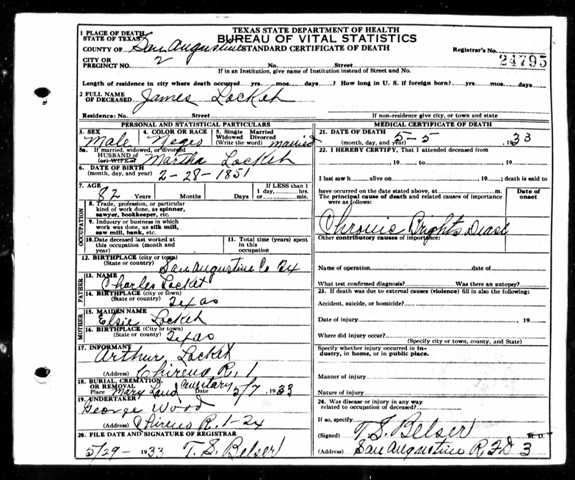 TEXAS STATE DEPARTMENT OF HEALTH
BUREAU OF VITAL STATISTICS
STANDARD CERTIFICATE OF DEATH
1 PLACE OF DEATH
STATE OF TEXAS
COUNTY OF San Augustine
CITY OR
PRECINCT NO. 2 No. Street
Registrar's No.
24795
If in an Institution, give name of Institution instead of Street and No.
Length of residence in city where death occurred yrs. mos. days. How long in U. S. if foreign born? yrs. mos. days.
2 FULL NAME
OF DECEASED James Lockeh
Residence: No. Street
If non-residence give city, or town and state
PERSONAL AND STATISTICAL PARTICULARS
3. SEX Male
4. COLOR OR RACE Negro
5. Single Married Widowed Divorced (Write the word) married
5a. If married, widowed, or divorced
HUSBAND OF
(or) WIFE of Martha Lockeh
6. DATE OF BIRTH
(month, day, and year) 2-28-1851
7. AGE 82 Years Months Days
If LESS than 1 day, hrs. or min.
OCCUPATION
8. Trade, profession, or particular kind of work done, as spinner, sawyer, bookkeeper, etc.
9. Industry or business in which work was done, as silk mill, saw mill, bank, etc.
10. Date deceased last worked at this occupation (month and year)
11. Total time (years) spent in this occupation
12. BIRTHPLACE (city or town)
(State or country) San Augustine Co Tex
FATHER
13. NAME Charles Lockat
14. BIRTHPLACE (city or town)
(State or country) Texas
MOTHER
15. MAIDEN NAME Elsie Lockeh
16. BIRTHPLACE (City or town)
(State or country) Texas
17. INFORMANT Arthur Lockeh
(Address) Chireno R. 1
18. BURIAL, CREMATION, OR REMOVAL
Place Mary Land Cemetary Date 5/7 1933
19. UNDERTAKER George Wood
(Address) Chireno R. 1-Tx
20. FILE DATE AND SIGNATURE OF REGISTRAR
5/29- 1933 T. S. Belser
MEDICAL CERTIFICATE OF DEATH
21. DATE OF DEATH
(month, day, and year) 5-5 1933
22. I HEREBY CERTIFY, That I attended deceased from
19 to 19
I last saw h alive on 19 ; death is said to
have occurred on the date stated above, at m.
The principal cause of death and related causes of importance were as follows:
Date of onset
Chronic Brights Diease
Other contributory causes of importance:
Name of operation date of
What test confirmed diagnosis? Was there an autopsy?
23. If death was due to external causes (violence) fill in also the following:
Accident, suicide, or homicide?
Date of injury 19
Where did injury occur?
(Specify city or town, county, and State)
Specify whether injury occurred in Industry, in home, or in public place.
Manner of injury
Nature of injury
24. Was disease or injury in any way related to occupation of deceased?
If so, specify
(Signed) T. S. Belser M. D.
San Augustine R.F.D. 3